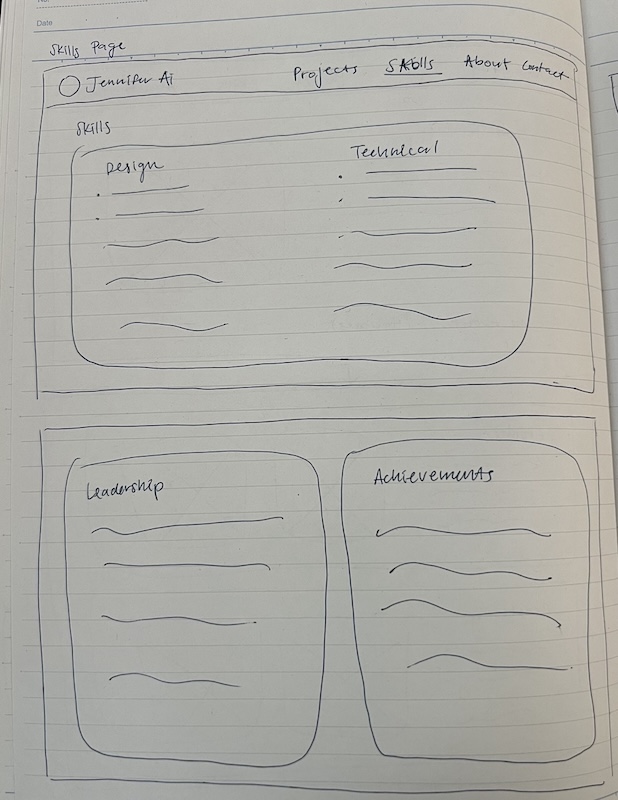 No.
Date
Skills Page
Jennifer Ai Projects Skills About Contact
Skills
Design Technical
Leadership Achievements